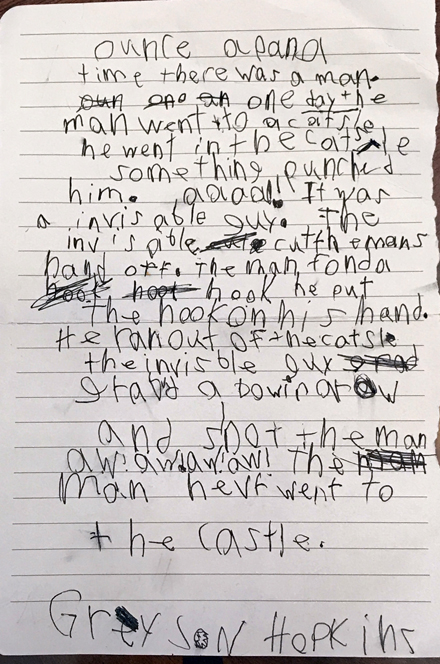 ounce apana
time there was a man.
oun one an one day the
man went to a catsle
he went in the catsle
something punched
him. aaaaa!! It was
a invisable guy. the
invisable cutthemans
hand off. The man fonda
hook hoot hook he put
the hook on his hand.
He ran out of the catsle
the invisble guy
grabd a bowinarow
and shot the man
aw!aw!aw!aw! The man
Man nevr went to
the castle.
Greyson HopKins